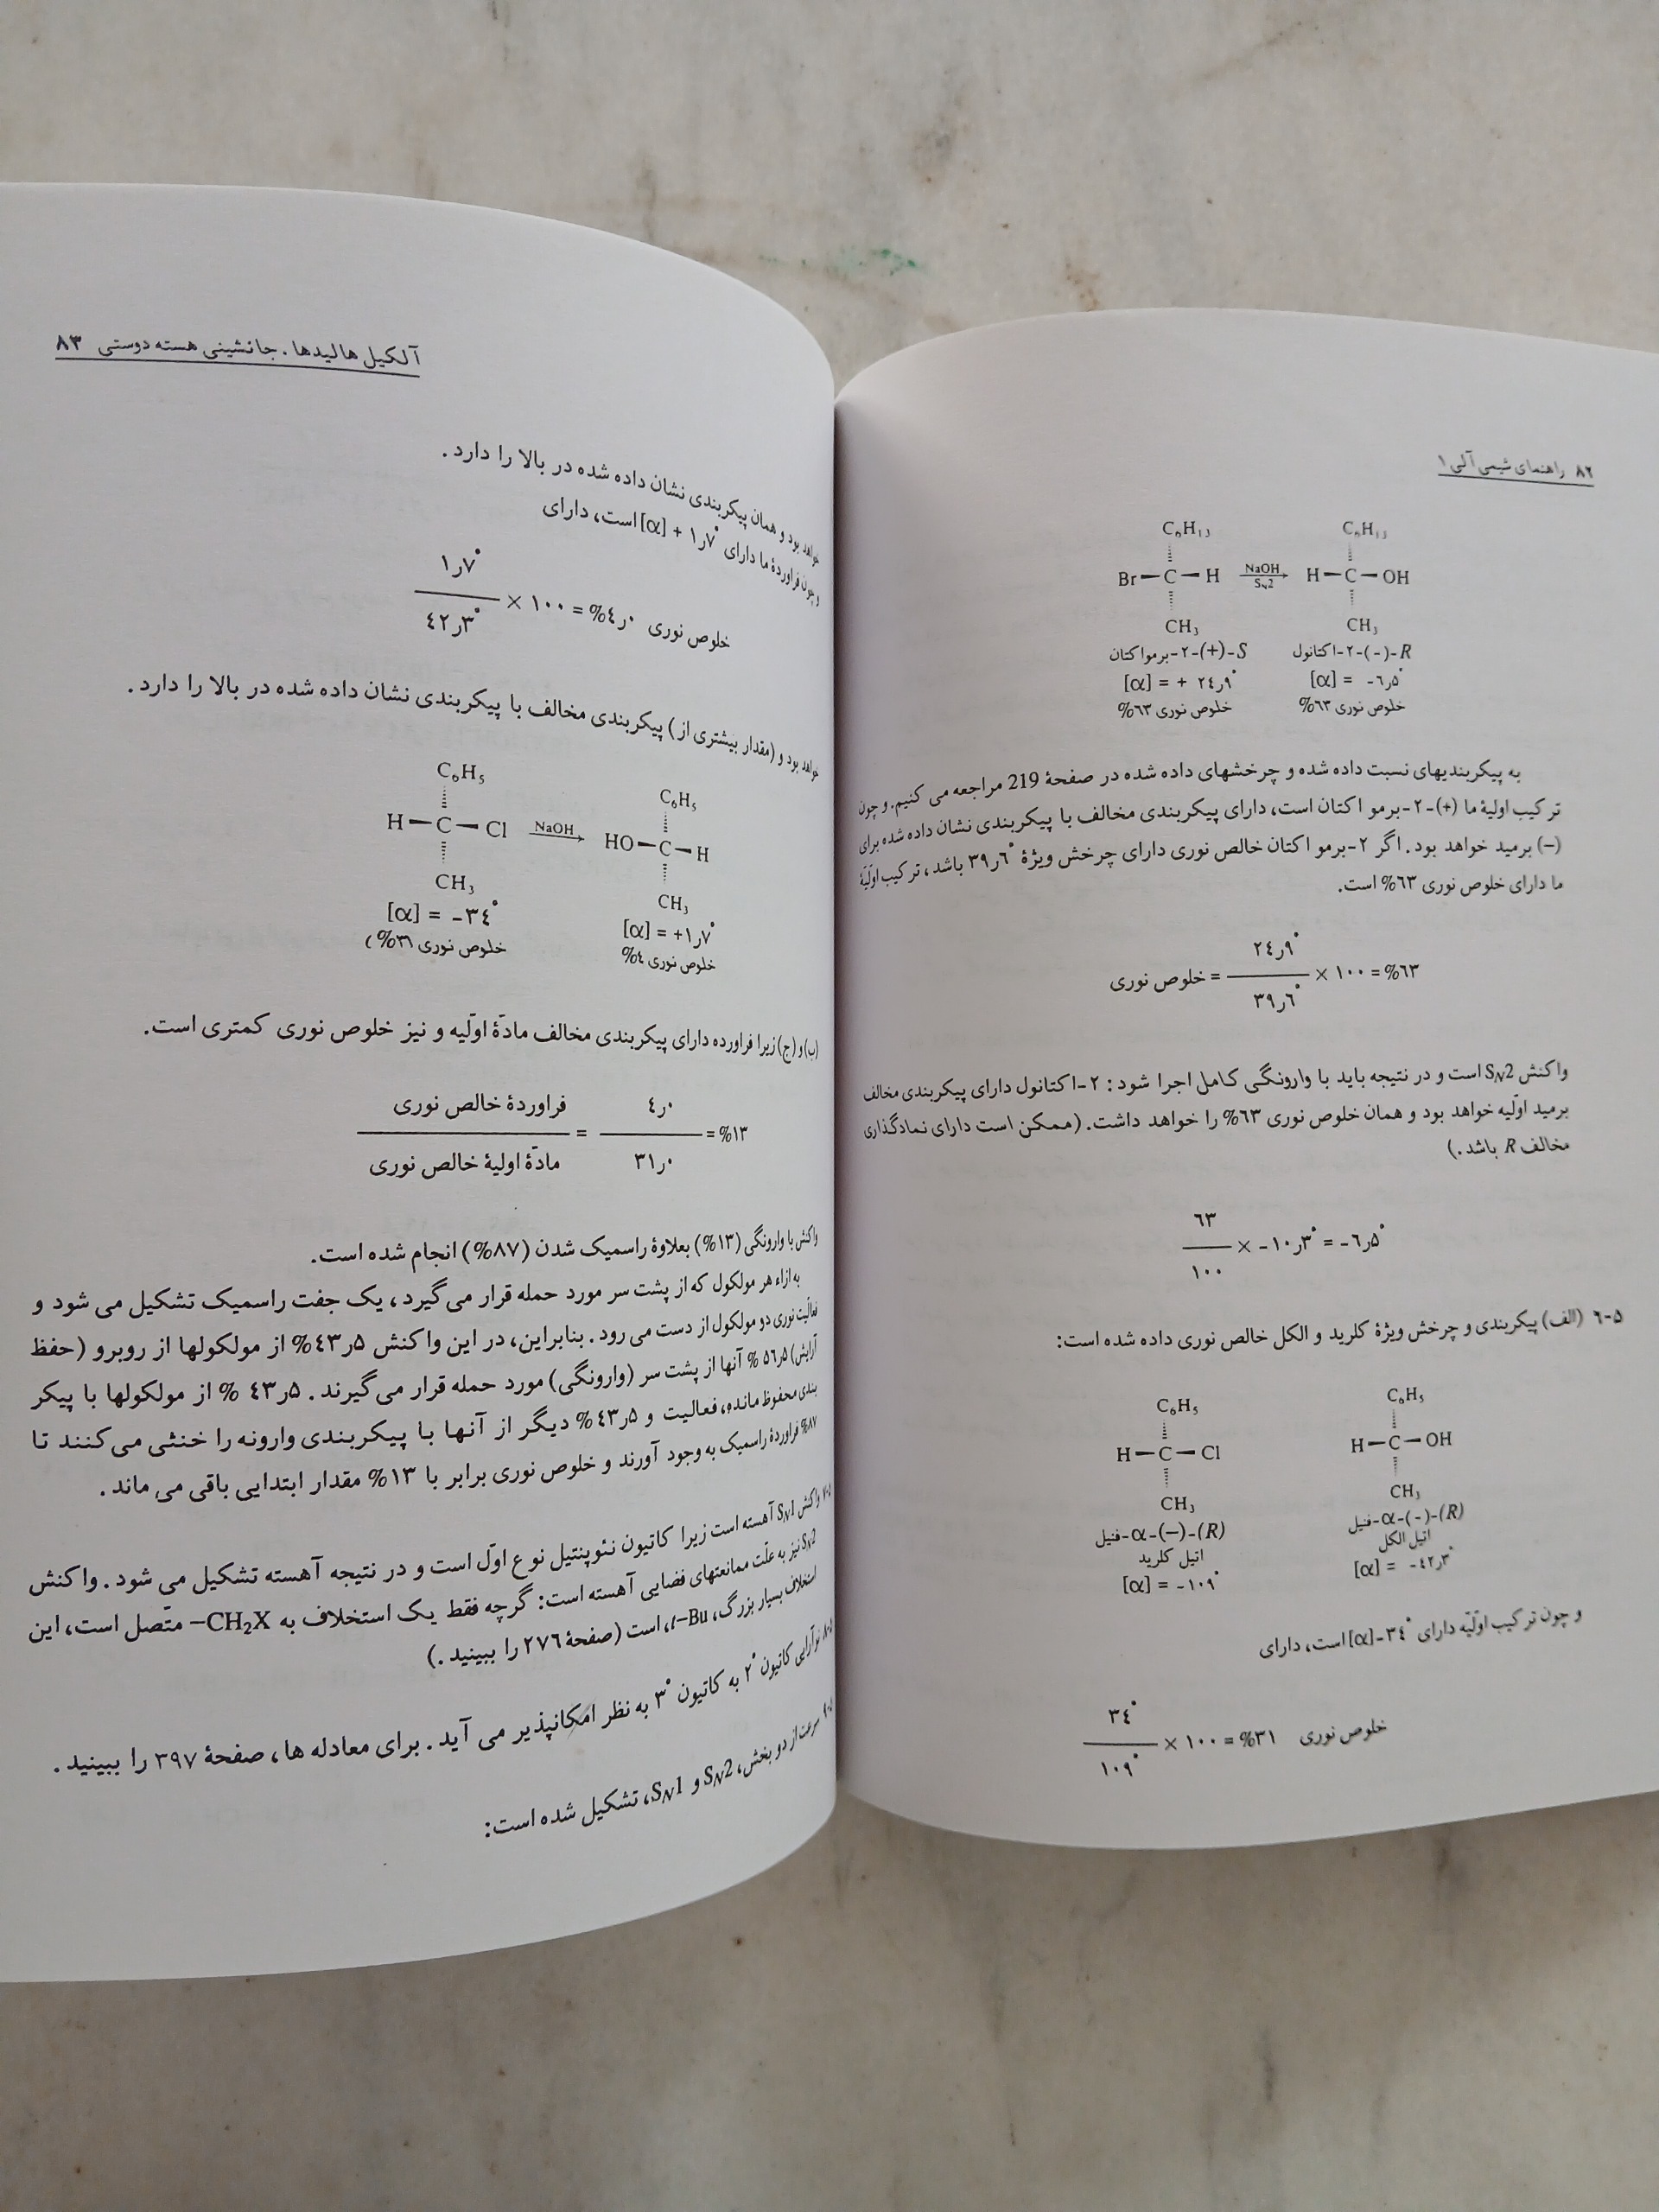 ۸۲ راهنمای شیمی آلی ۱
C₆H₁₃ C₆H₁₃
Br—C—H NaOH SN2 H—C—OH
CH₃ CH₃
S-(+)-۲-برمواکتان R-(-)-۲-اکتانول
[α] = + ۲٤ر۹° [α] = -٦ر۵°
خلوص نوری ٦۳% خلوص نوری ٦۳%
به پیکربندیهای نسبت داده شده و چرخشهای داده شده در صفحهٔ 219 مراجعه می کنیم. و چون
ترکیب اولیهٔ ما (+)-۲-برمو اکتان است، دارای پیکربندی مخالف با پیکربندی نشان داده شده برای
(–) برمید خواهد بود. اگر ۲-برمو اکتان خالص نوری دارای چرخش ویژهٔ ۳۹ر٦° باشد، ترکیب اولیّهٔ
ما دارای خلوص نوری ٦۳% است.
۲٤ر۹°
خلوص نوری = × ۱۰۰ = %٦۳
۳۹ر٦°
واکنش SN2 است و در نتیجه باید با وارونگی کامل اجرا شود: ۲-اکتانول دارای پیکربندی مخالف
برمید اولّیه خواهد بود و همان خلوص نوری ٦۳% را خواهد داشت. (ممکن است دارای نمادگذاری
مخالف R باشد.)
٦۳
× -۱۰ر۳° = -٦ر۵°
۱۰۰
۵-٦ (الف) پیکربندی و چرخش ویژهٔ کلرید و الکل خالص نوری داده شده است:
C₆H₅ C₆H₅
H—C—Cl H—C—OH
CH₃ CH₃
(R)-(–)-α-فنیل (R)-(-)-α-فنیل
اتیل کلرید اتیل الکل
[α] = -۱۰۹° [α] = -٤۲ر۳°
و چون ترکیب اولیّه دارای ۳٤°-[α] است، دارای
۳٤°
× ۱۰۰ = %۳۱ خلوص نوری
۱۰۹°
آلکیل هالیدها. جانشینی هسته دوستی ۸۳
خواهد بود و همان پیکربندی نشان داده شده در بالا را دارد.
و چون فراوردهٔ ما دارای ۱ر۷° + [α] است، دارای
۱ر۷°
× ۱۰۰ = %٤ر۰ خلوص نوری
٤۲ر۳°
خواهد بود و (مقدار بیشتری از) پیکربندی مخالف با پیکربندی نشان داده شده در بالا را دارد.
C₆H₅ C₆H₅
H—C—Cl NaOH HO—C—H
CH₃ CH₃
[α] = -۳٤° [α] = +۱ر۷°
خلوص نوری ۳۱%) خلوص نوری ٤%
(ب) و (ج) زیرا فراورده دارای پیکربندی مخالف مادّهٔ اولّیه و نیز خلوص نوری کمتری است.
فراوردهٔ خالص نوری ٤ر۰
= = %۱۳
مادّهٔ اولیهٔ خالص نوری ۳۱ر۰
واکنش با وارونگی (۱۳%) بعلاوهٔ راسمیک شدن (۸۷%) انجام شده است.
به ازاء هر مولکول که از پشت سر مورد حمله قرار می گیرد، یک جفت راسمیک تشکیل می شود و
فعالّیت نوری دو مولکول از دست می رود. بنابراین، در این واکنش ٤۳ر۵% از مولکولها از روبرو (حفظ
آرایش) ۵٦ر۵ % آنها از پشت سر (وارونگی) مورد حمله قرار می گیرند. ٤۳ر۵ % از مولکولها با پیکر
بندی محفوظ مانده، فعالیت و ٤۳ر۵% دیگر از آنها با پیکربندی وارونه را خنثی می کنند تا
۸۷% فراوردهٔ راسمیک به وجود آورند و خلوص نوری برابر با ۱۳% مقدار ابتدایی باقی می ماند.
۵-۷ واکنش SN1 آهسته است زیرا کاتیون نئوپنتیل نوع اوّل است و در نتیجه آهسته تشکیل می شود. واکنش
SN2 نیز به علّت ممانعتهای فضایی آهسته است: گرچه فقط یک استخلاف به CH₂X– متّصل است، این
استخلاف بسیار بزرگ، t–Bu، است (صفحهٔ ۲۷٦ را ببینید.)
۵-۸ نوآرایی کاتیون ۲° به کاتیون ۳° به نظر امکانپذیر می آید. برای معادله ها، صفحهٔ ۳۹۷ را ببینید.
۵-۹ سرعت از دو بخش، SN2 و SN1، تشکیل شده است: